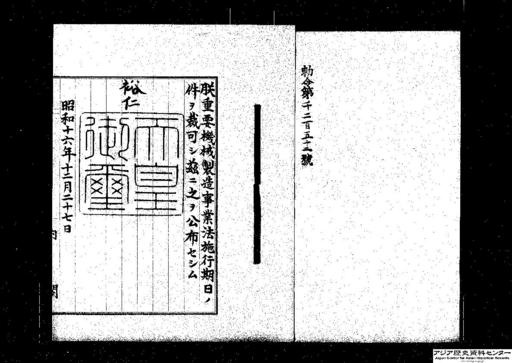 勅令第千二百五十三號
朕重要機械製造事業法施行期日ノ
件ヲ裁可シ茲ニ之ヲ公布セシム
裕仁
天皇
御璽
昭和十六年十二月二十七日
内閣
アジア歴史資料センター
Japan Center for Asian Historical Records